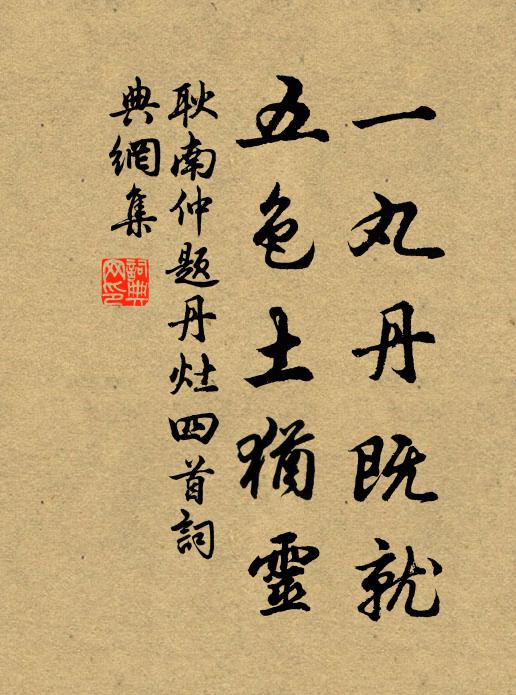 一丸丹既就
五色土猶靈
耿南仲題丹灶四首詞
典網集
詞典
网印